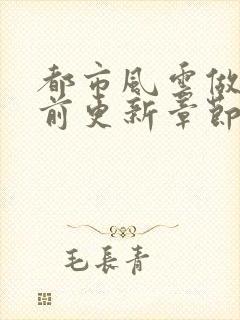 都市風雲做
前更新章節
毛長青